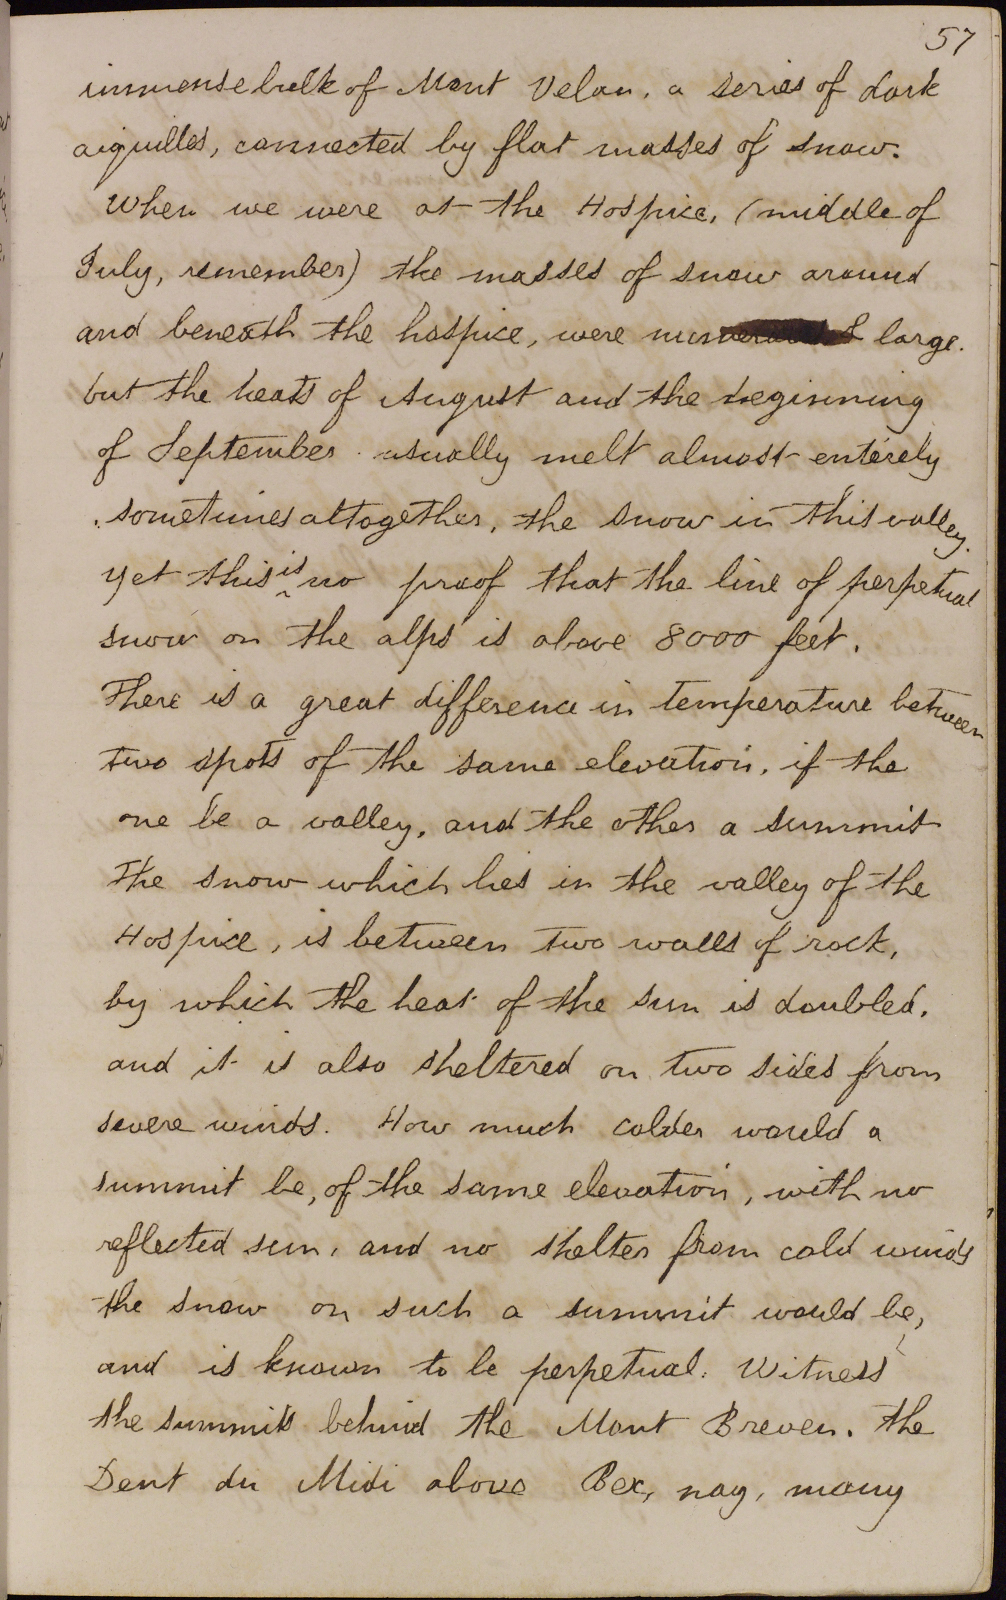 57
immense bulk of Mont Velan, a series of dark
aiguilles, connected by flat masses of snow.
When we were at the Hospice, (middle of
July, remember) the masses of snow around
and beneath the hospice, were numerous & large.
but the heats of August and the beginning
of September usually melt almost entirely
, sometimes altogether, the snow in this valley.
yet this is no proof that the line of perpetual
snow on the alps is above 8000 feet.
There is a great difference in temperature between
two spots of the same elevation, if the
one be a valley, and the other a summit
The snow which lies in the valley of the
Hospice, is between two walls of rock,
by which the heat of the sun is doubled,
and it is also sheltered on two sides from
severe winds. How much colder would a
summit be, of the same elevation, with no
reflected sun, and no shelter from cold winds
the snow on such a summit would be,
and is known to be perpetual. Witness
the summits behind the Mont Breven. the
Dent du Midi above Bex, nay, many